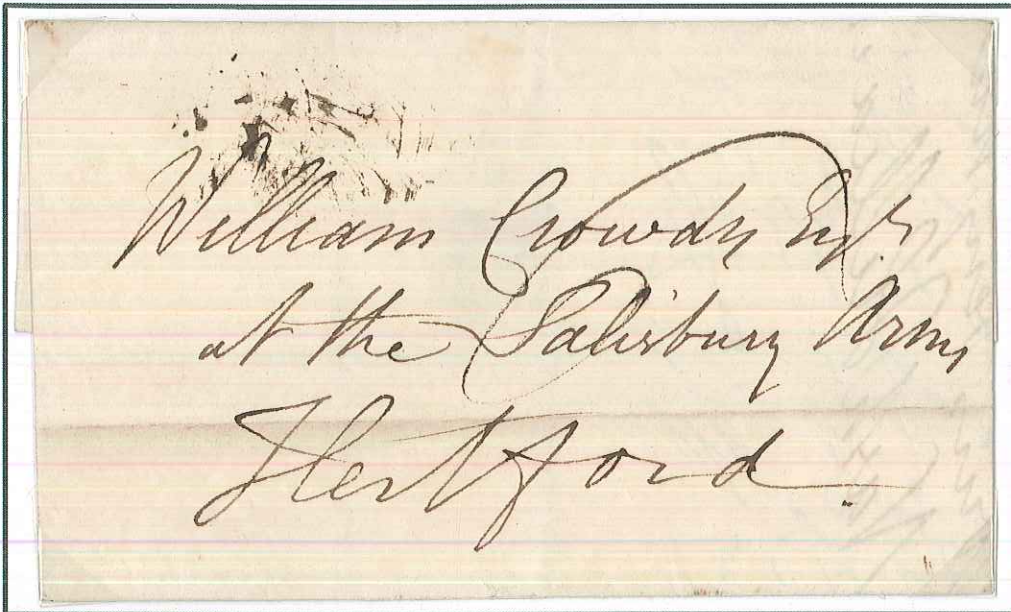 William Crowdy Esqr.
at the Salisbury Arms
Hertford.